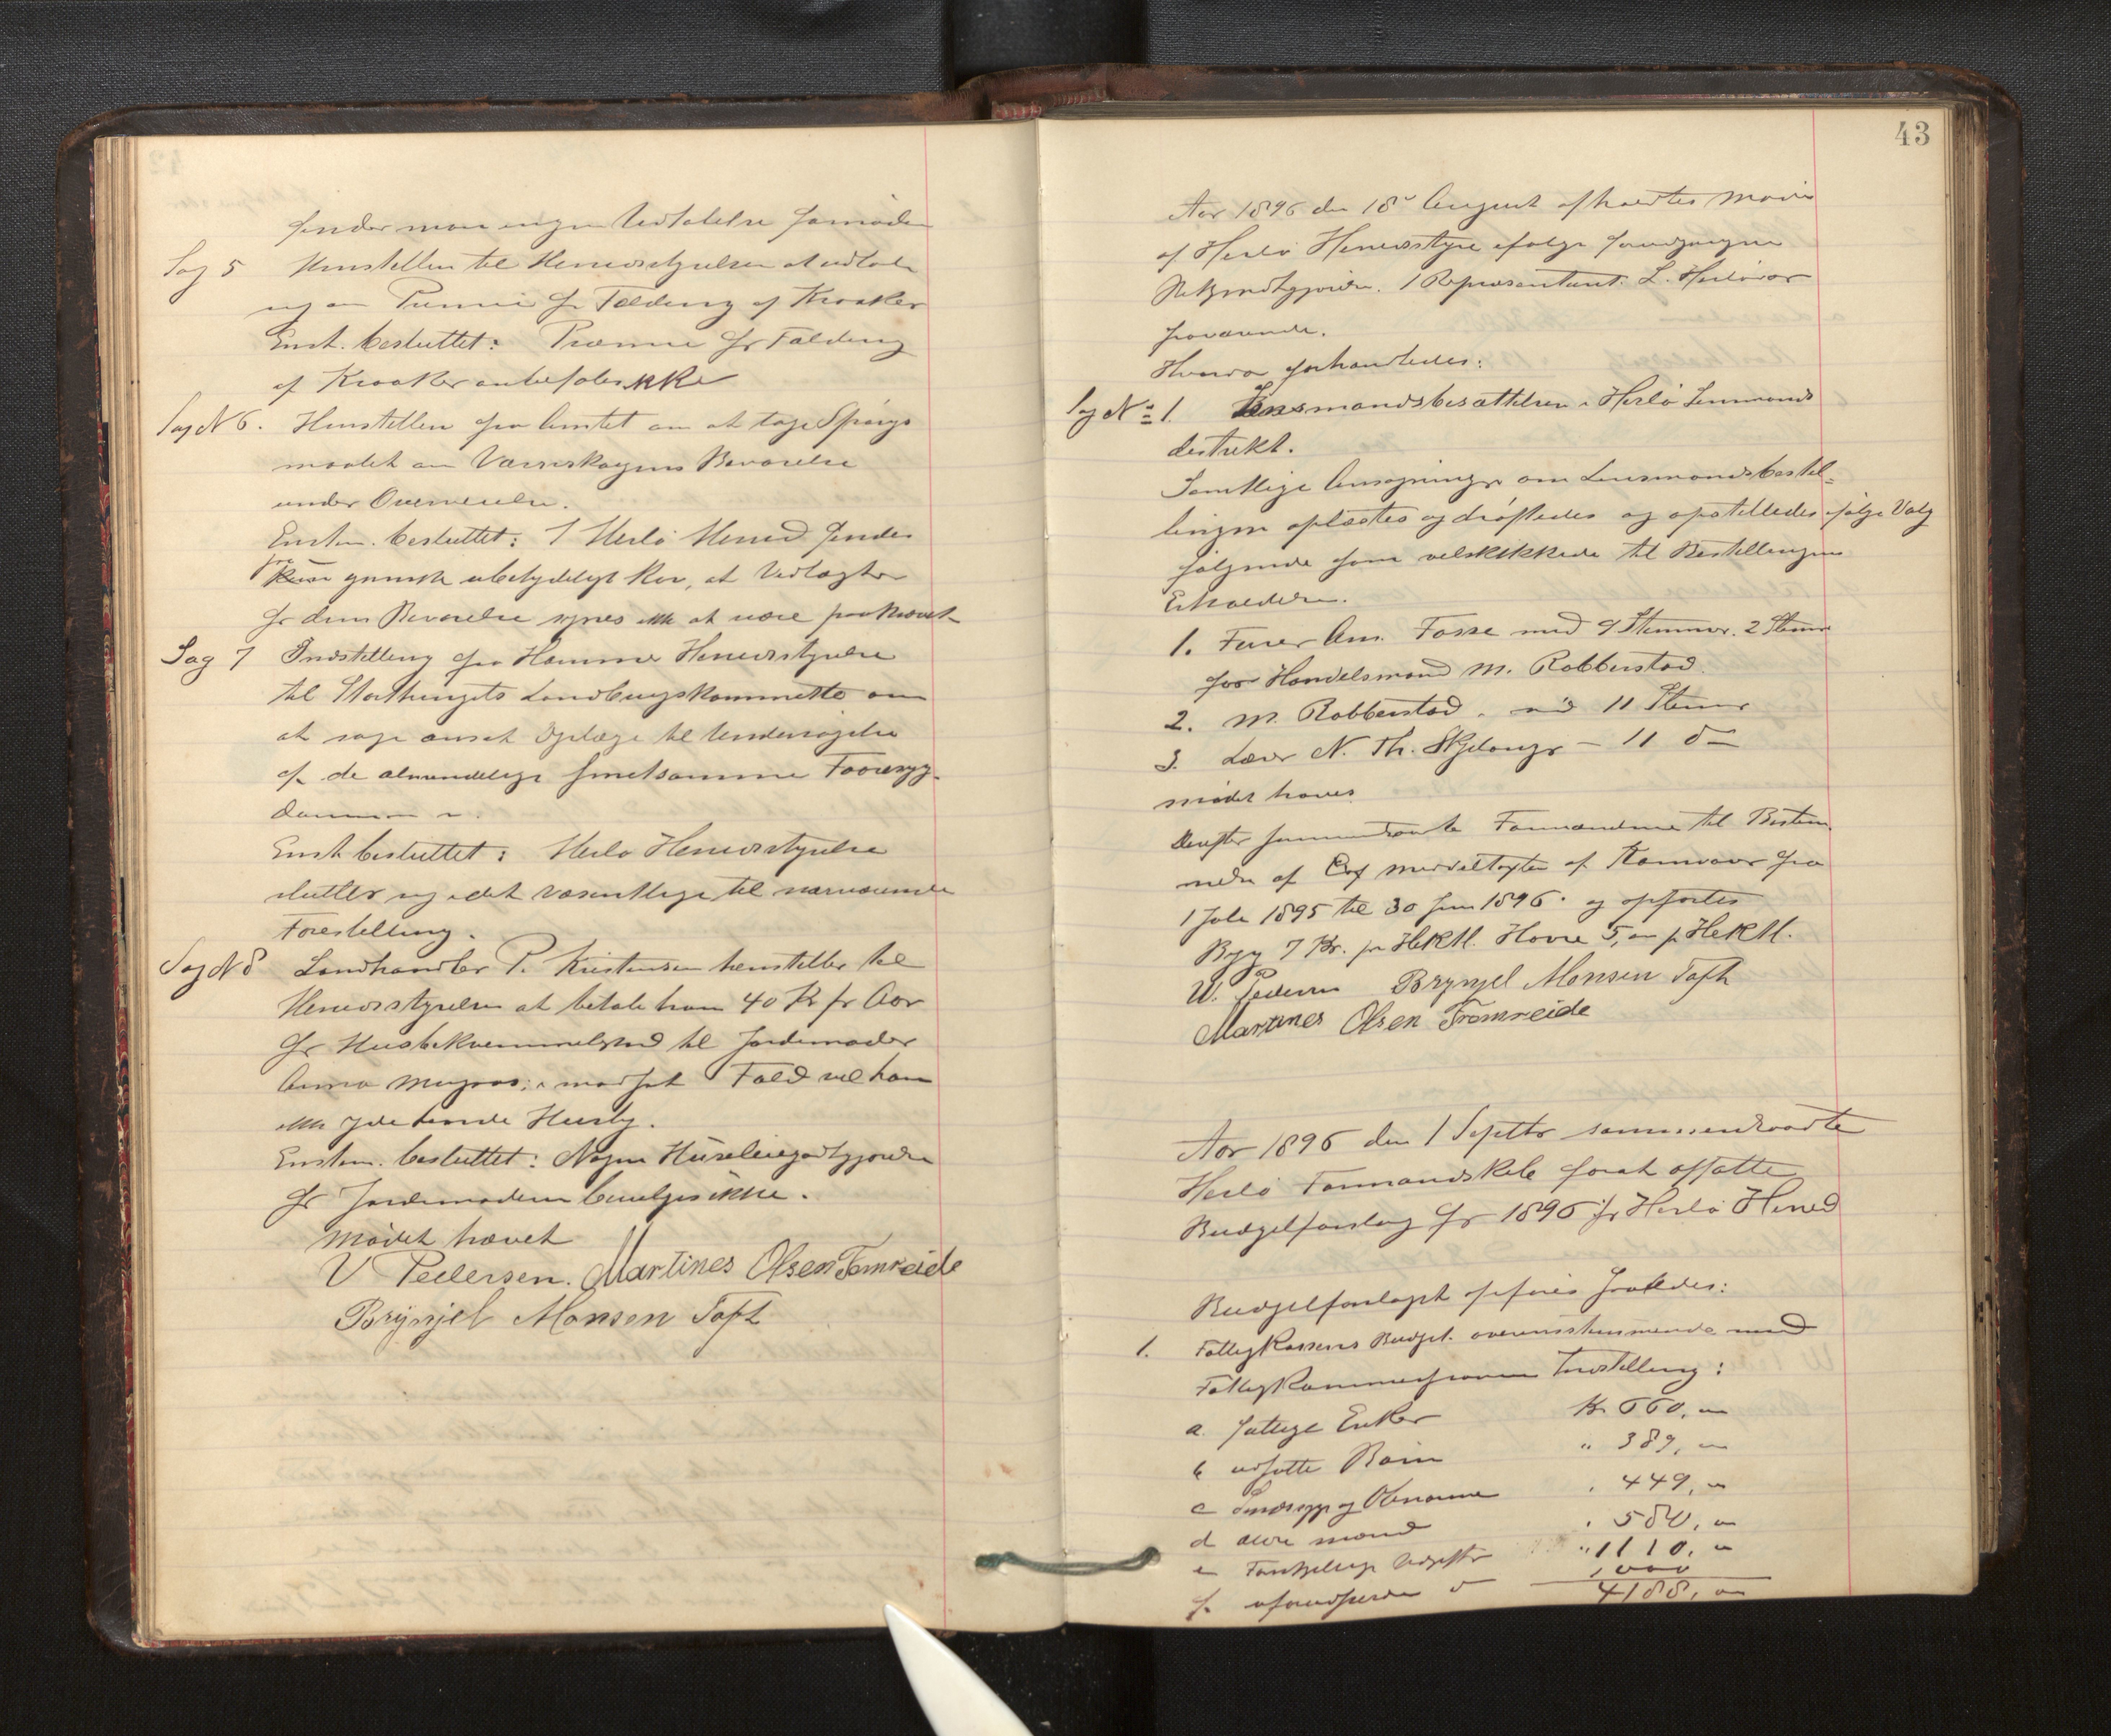 finder man ingen Udtalelse fornöden
Sag 5 Henstillen til Herredsstyrelsen at udtale
sig om Præmie for Fældning af Kraaker
Enst. besluttet: Præmie for Fældning
af Kraaker anbefales ikke
Sag N 6. Henstillen fra Amtet om at tage Spörgs
maalet om Værneskogens Bevarelse
under Overveielse.
Enstem. besluttet: I Herlö Herred findes
fra
ganske ubetydeligt Kov, at Vedtægter
for dens Bevarelse synes ikke at være paakrævet
Sag 7 Indstilling fra Hammer Herredsstyrelse
til Storthingets Landbrugskommitte om
at söge ansat Dyrlæge til Undersögelse
af de almindelige smitsomme Faaresyg-
dommen
Enst besluttet: Herlö Herredsstyrelse
slutter sig i det væsentlige til nærværende
Forestilling.
Sag N 8 Landhandler P. Kristensen henstiller til
Herredsstyrelsen at betale ham 40 Kr pr Aar
for Husbekvemmelighed til Jordemoder
Anna Mugaas; i modsat Fald vil han
ikke yde hende Husly.
Enstem. besluttet: Nogen Huseleiegodtgjörelse
for Jordemoderen bevilges ikke.
Mödet hævet
V Pedersen. Martines Olsen Fomreide
Brynjel Monsen Toft
43
Aar 1896 den 18de August afholdtes Möde
af Herlö Herredsstyre ifölge foregaaende
Bekjendtgjörelse. 1 Repræsentant L. Herlövær
fraværende.
Hvorda forhandledes:
Sag No 1. Lensmandsbesættelsen i Herlö Lensmands
destrikt.
Samtlige Ansögninger om Lensmandsbestil-
lingen oplæstes og dröftedes og opstilledes ifölge Valg
fölgende som velskikkede til Bestillingens
Erholdelse.
1. Furer Am. Fosse med 9 Stemmer. 2 Stemr
for Handelsmand M. Robberstad.
2. M. Robberstad. med 11 Stemr
3. Lærer N. Th. Skjelanger – 11 do
mödet hæves
Derefter sammentraadte Formændene til Bestem
melse af middeltaxten af Kornvarer fra
1 Juli 1895 til 30 Juni 1896. og opfortes
Byg 7 Kr. pr Hektl. Havre 5, – pr Hektl.
W. Pedersen Brynjel Monsen Toft
Martines Olsen Fromreide
Aar 1896 den 1 Septbr sammentraadte
Herlö Formandskab forat affatte
Budgetforslag for 1896 for Herlö Herred
Budgetforslaget opföres saaledes:
1. Fattigkassens Budget. overensstemmende med
Fattigkommissionens Indstilling:
a. fattige Enker Kr 660, –
b udsatte Börn " 389, –
c Sindssyge og Abnorme " 449, –
d ældre mænd " 580, –
e Forskjellige Udgifter " 1110, –
f. uforudseede do 1000
4188, –